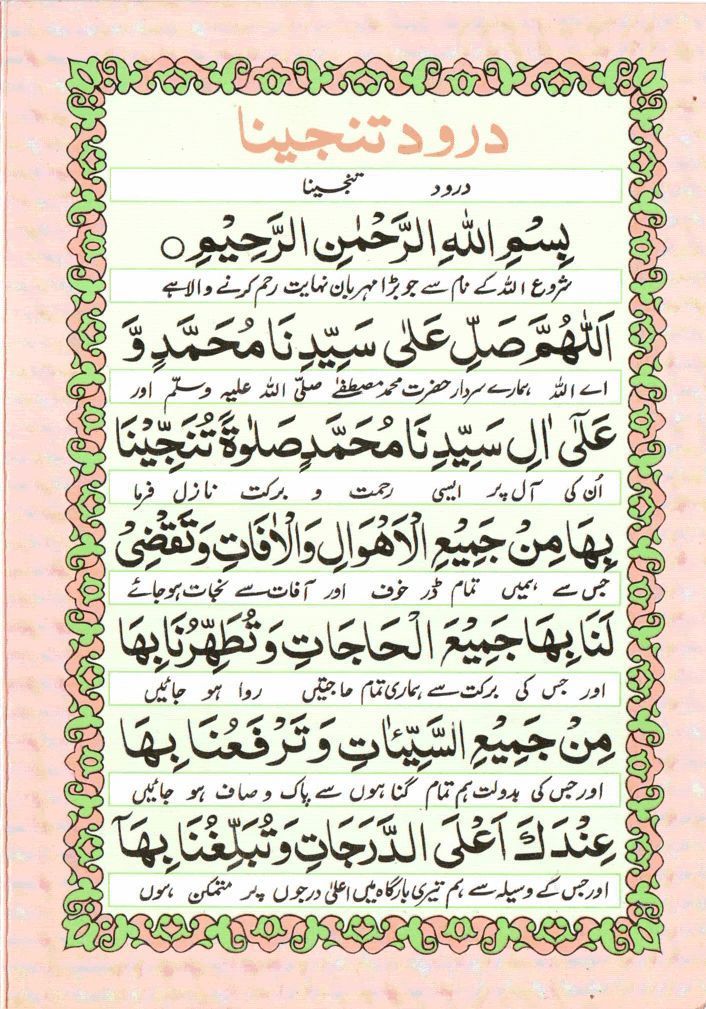 درود تنجینا
درود تنجینا
بِسْمِ اللهِ الرَّحْمٰنِ الرَّحِيْمِ ○
شروع اللہ کے نام سے جو بڑا مہربان نہایت رحم کرنے والا ہے
اَللّٰهُمَّ صَلِّ عَلٰى سَيِّدِنَا مُحَمَّدٍ وَّ
اے اللہ ہمارے سردار حضرت محمد مصطفےٰ صلّی اللہ علیہ وسلّم اور
عَلٰٓى اٰلِ سَيِّدِنَا مُحَمَّدٍ صَلٰوةً تُنَجِّيْنَا
اُن کی آل پر ایسی رحمت و برکت نازل فرما
بِهَا مِنْ جَمِيْعِ الْاَهْوَالِ وَالْاٰفَاتِ وَتَقْضِىْ
جس سے ہمیں تمام ڈر خوف اور آفات سے نجات ہو جائے
لَنَا بِهَا جَمِيْعَ الْحَاجَاتِ وَتُطَهِّرُنَا بِهَا
اور جس کی برکت سے ہماری تمام حاجتیں روا ہو جائیں
مِنْ جَمِيْعِ السَّيِّئٰاتِ وَتَرْفَعُنَا بِهَا
اور جس کی بدولت ہم تمام گناہوں سے پاک و صاف ہو جائیں
عِنْدَكَ اَعْلَى الدَّرَجَاتِ وَتُبَلِّغُنَا بِهَآ
اور جس کے وسیلہ سے ہم تیری بارگاہ میں اعلیٰ درجوں پر متمکن ہوں